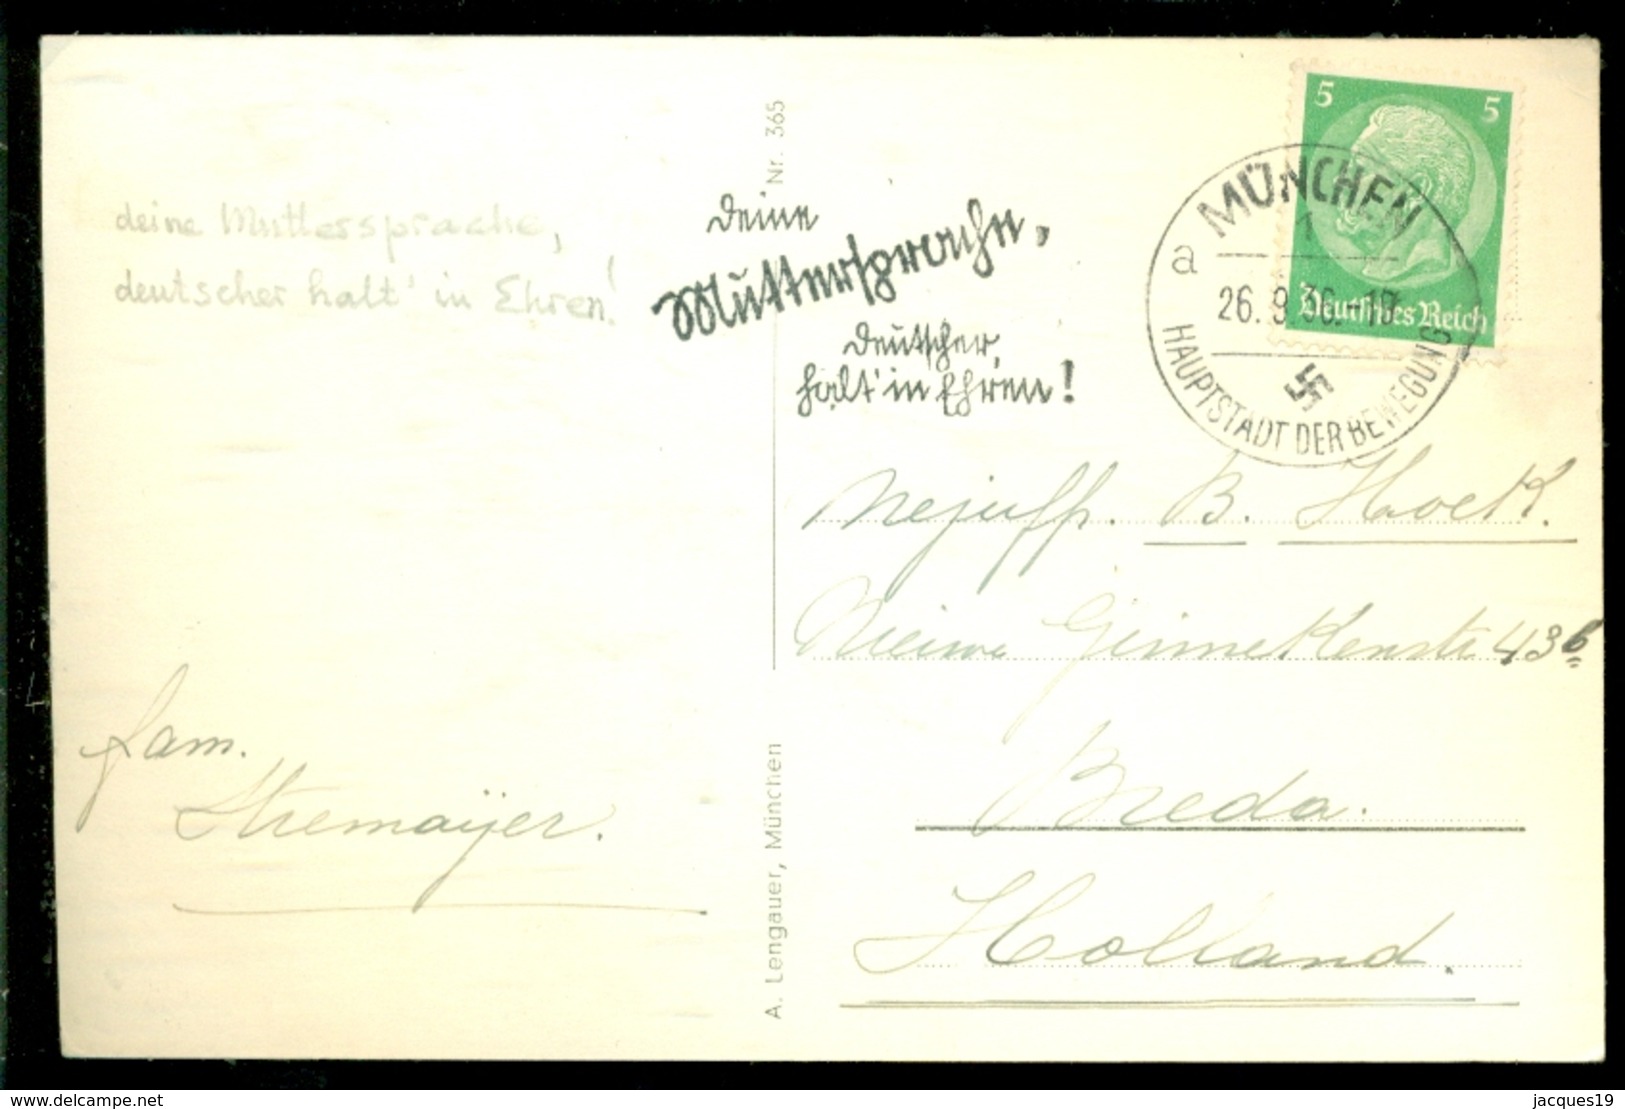 5 5
Deutsches Reich
MÜNCHEN
1
a
26.9.36.-18
HAUPTSTADT DER BEWEGUNG
Nr. 365
deine Muttersprache,
deutscher halt' in Ehren!
Deine
Muttersprache,
Deutscher,
halt' in Ehren!
Mejuffr. B. Hoek.
Nieuwe Ginnekenstr 43b
Breda.
Holland.
fam.
Stremaÿer.
A. Lengauer, München
www.delcampe.net
jacques19